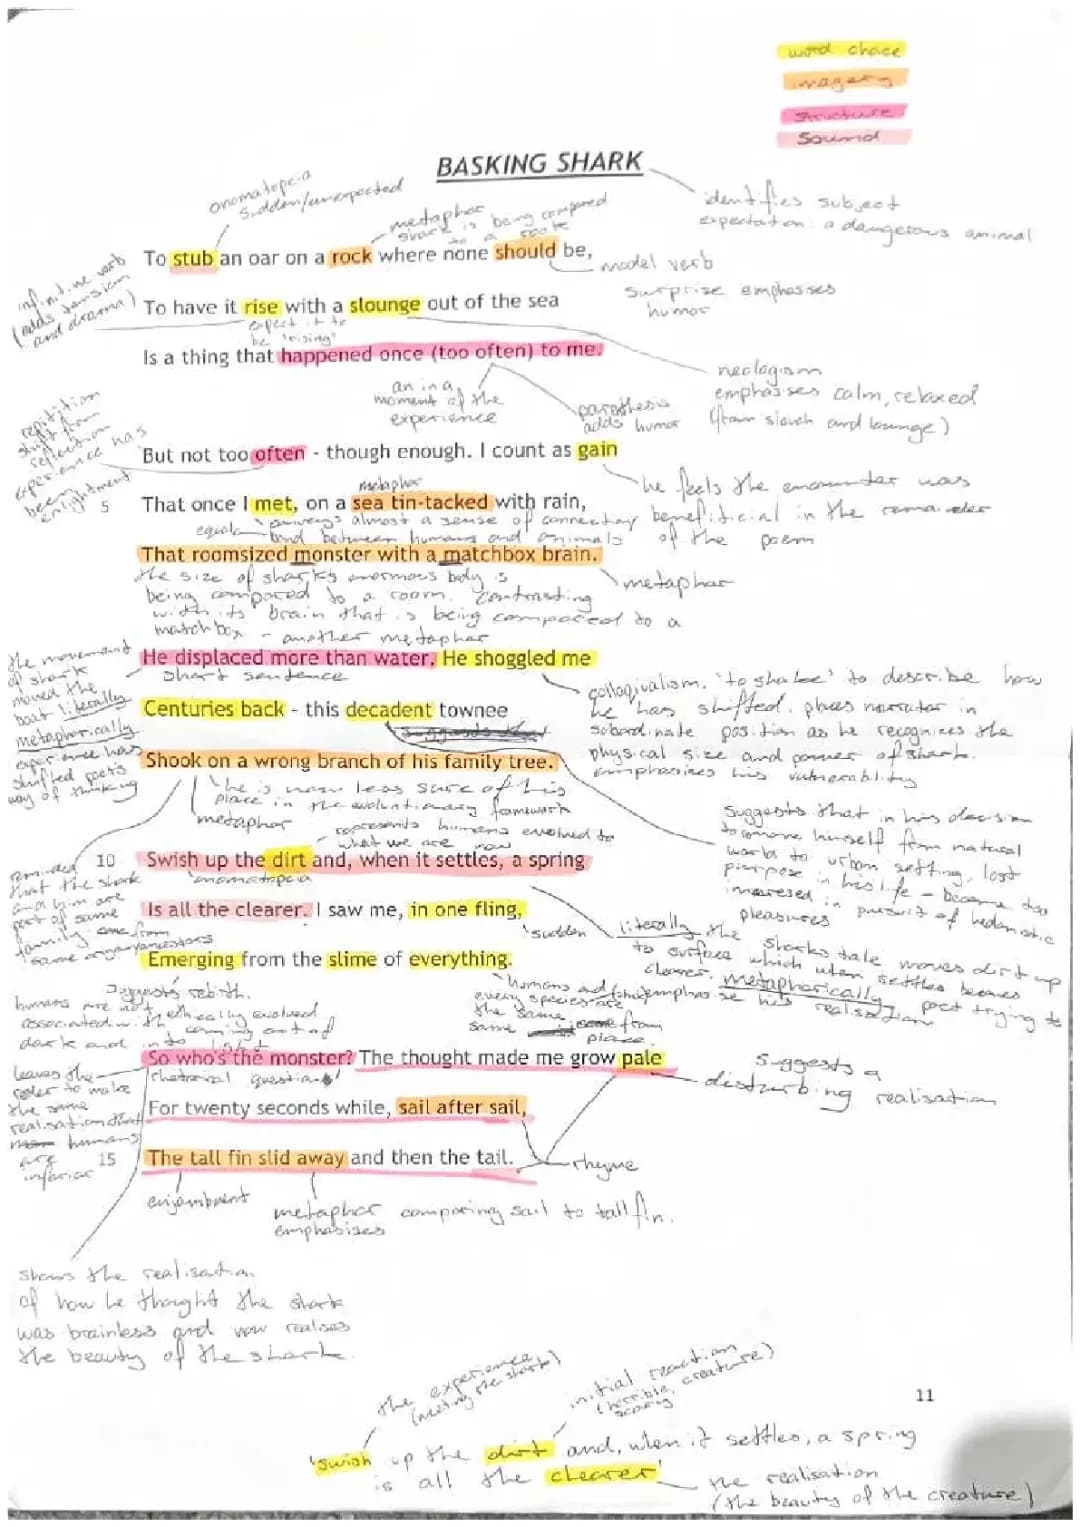 word choice
imagery
structure
sound
BASKING SHARK
onomatopoeia
sudden/unexpected
metaphor
shark is being compared
to a rock
identifies subject
expectation: a dangerous animal
To stub an oar on a rock where none should be,
model verb
infinitive verb
(adds tension
and drama)
surprise emphasises
humor
To have it rise with a slounge out of the sea
expect it to
be 'rising'
Is a thing that happened once (too often) to me.
neologism
emphasises calm, relaxed
(from slouch and lounge)
an in a
moment of the
experience
parathesis
adds humor
repitition
shift from
reflection
experience has
been
enlightment
But not too often - though enough. I count as gain
he feels the encounter was
benefiticial in the remainder
of the poem
metaphor
5 That once I met, on a sea tin-tacked with rain,
equal conveys almost a sense of connectory
bond between humans and animals
That roomsized monster with a matchbox brain.
metaphor
the size of sharks enormous body is
being compared to a room. Contrasting
with its brain that is being compared to a
matchbox - another metaphor
the movement
of shark
moved the
boat literally
metaphorically
experience has
shifted poets
way of thinking
He displaced more than water. He shoggled me
short sentence
colloquialism. 'to shake' to describe how
he has shifted. places narrator in
subordinate position as he recognizes the
physical size and power of shark.
emphasizes his vulnerability
Centuries back - this decadent townee
Shook on a wrong branch of his family tree.
he is now less sure of his
place in the evolutionary framework
metaphor
represents humans evolved to
what we are now
suggests that in his decision
to remove himself from natural
world to urban setting, lost
purpose in his life - become too
interesed in pursuit of hedonistic
pleasures
10 Swish up the dirt and, when it settles, a spring
onomatopoeia
reminded
that the shark
and him are
part of same
family come from
same ancestors
Is all the clearer. I saw me, in one fling,
sudden
literally the sharks tale moves dirt up
to surface which when settles becomes
clearer. metaphorically poet trying to
emphasise his realisation
Emerging from the slime of everything.
suggests rebirth.
humans are not
associated with
dark and into light
humans and
every species are
the same
same come from
place
So who's the monster? The thought made me grow pale
rhetorical question
suggests a
disturbing realisation
leaves the
reder to make
the same
realisation that
humans
are
inferior
For twenty seconds while, sail after sail,
15 The tall fin slid away and then the tail.
rhyme
enjambment
metaphor comparing sail to tall fin.
emphasises
shows the realisation
of how he thought the shark
was brainless and now realises
the beauty of the shark.
the experience
(meeting the shark)
initial reaction
(horrible, creature)
scary
11
'swish up the dirt and, when it settles, a spring
is all the clearer'
the realisation
(the beauty of the creature)